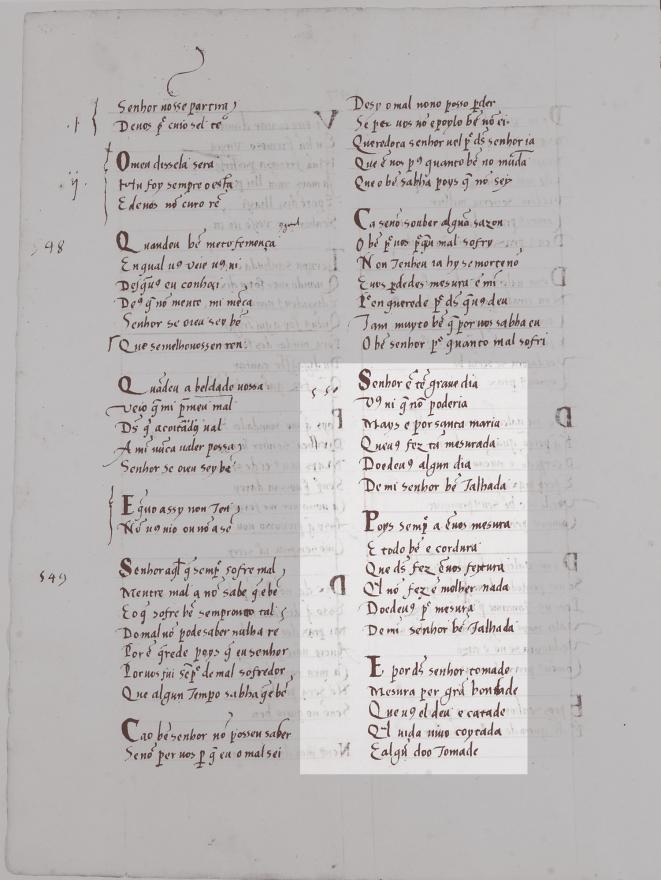 Senhor nosse partira
De uos pº cuio sel tẽ
.ij.
O meu dissela sera
Mui foy sempre o esta
E de uos nõ curo rẽ
548
Quandeu bẽ meto femença
En qual uꝯ ueio uꝯ ui
Desq̃uꝯ eu conhoci
Deꝯ q̃ nõ mente, mi mẽca
Senhor se oieu sey bẽ
Que semelhouossen ren
Quãdeu a beldade uossa
Veio q̃ mi p̃ meu mal
Dš q̃ acoitadꝯ ual
A mi nũca ualer possa
Senhor se oieu sey bẽ
E quo assy non Ten
Nõ uꝯ uio ou nõ a sẽ
549
Senhor aq̃l q̃ semp̃ sofre mal
Mentre mal a nõ sabe q̃ e bẽ
E o q̃ sofre bẽ sempr outro tal
Do mal nõ pode saber nulha re
Por ẽ q̃rede poys q̃ eu senhor
Por uos fui semp̃ de mal sofredor
Que algun Tempo sabha q̃ e bẽ
Ca o bẽ senhor nõ posseu saber
Senõ per uos p q̃ eu o mal sei
Desy o mal nono posso ꝑder
Se per uos nõ e poylo bẽ nõ ei
Queredora senhor uel pº dš senhor ia
Que ẽ uos pꝯ quanto bẽ no mũdã
Que o bẽ sabha poys q̃ nõ sey
Ca senõ souber algũa sazon
O bẽ pº uos p̃ q̃ eu mal sofry
Non Tenheu ia hy se morte nõ
E uos ꝑdedes mesura ẽ mi
Pº en querede pº dš q̃ uꝯ deu
Tam muyto bẽ q̃ por uos sabba eu
O bẽ senhor pº quanto mal sofri
550
Senhor ẽ tã graue dia
Vꝯ ui q̃ nõ poderia
Mays e por santa maria
Que uꝯ fez tã mesurada
Doedeuꝯ algun dia
De mi senhor bẽ Talhada
Poys semp̃ a ẽ uos mesura
E todo bẽ e cordura
Que dš fez ẽ uos feytura
Q̃l nõ fez ẽ molher nada
Doedeuꝯ pº mesura
De mi senhor bẽ Talhada
E por dš senhor tomade
Mesura per grã bondade
Que uꝯ el deu e catade
Q̃l uida uiuo coytada
E algũ doo Tomade